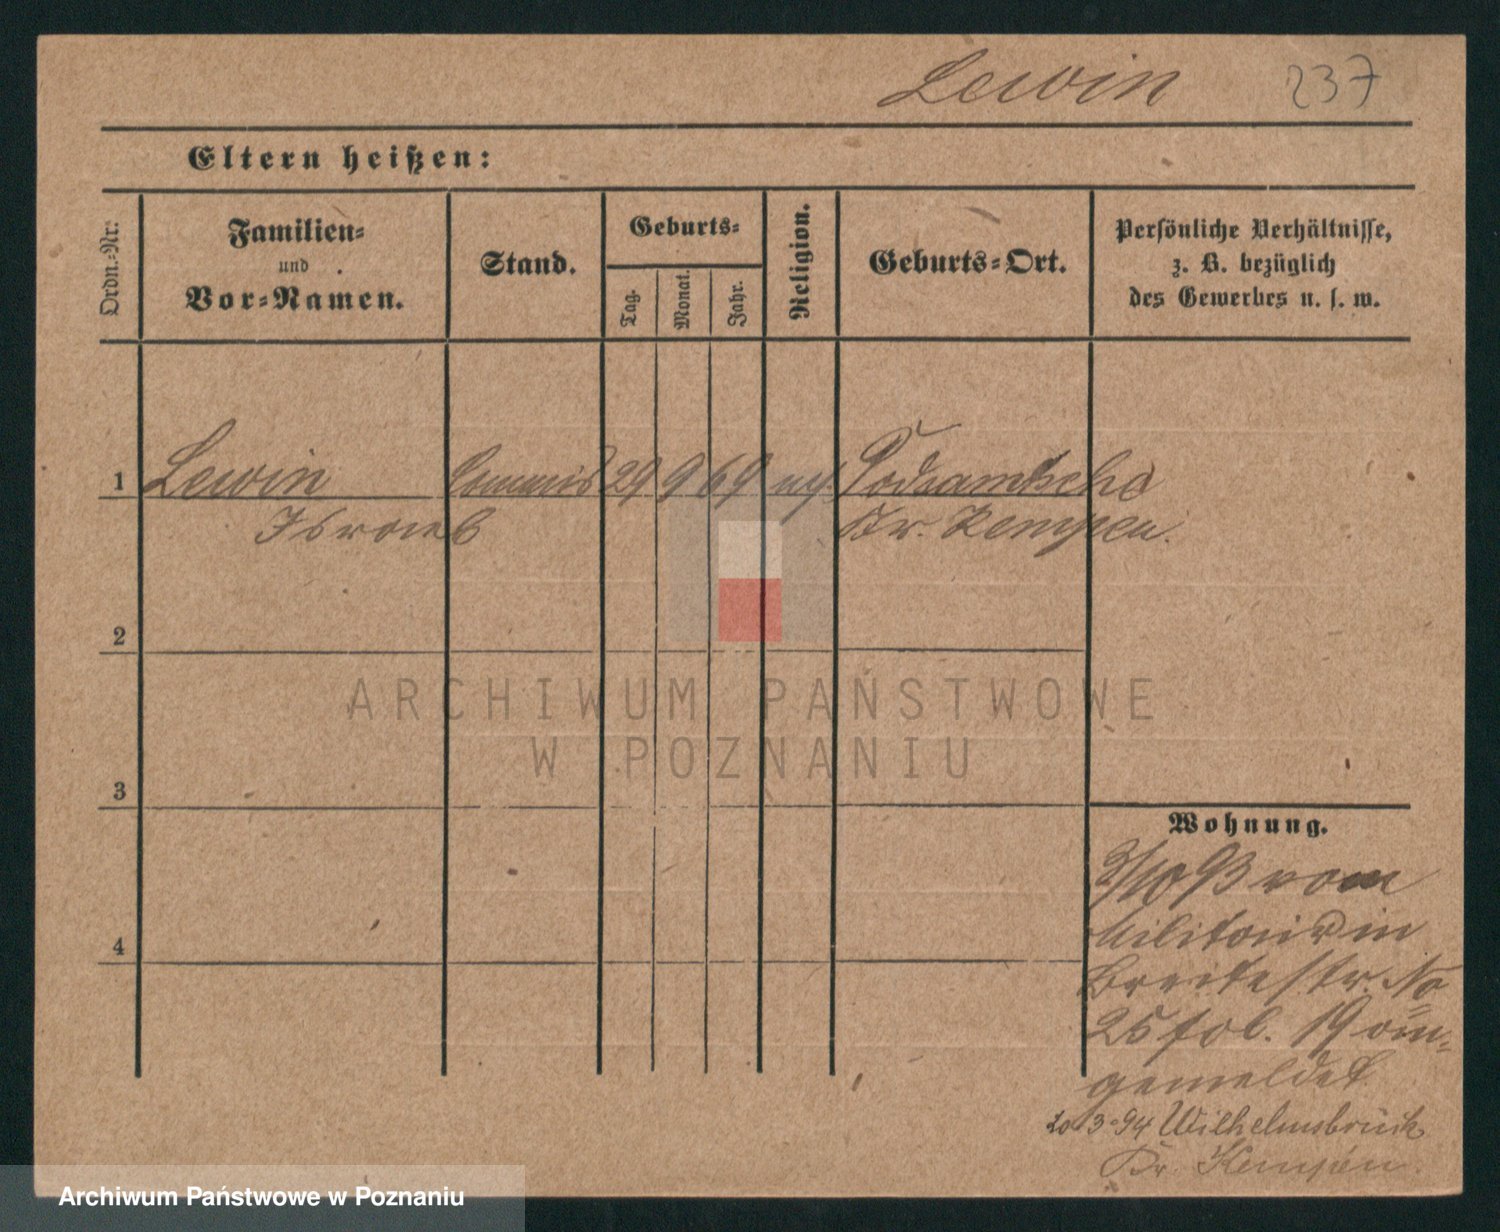 Lewin 237
Eltern heißen:
Ordn.-Nr:
Familien-
und
Vor-Namen.
Stand.
Geburts-
Tag.
Monat.
Jahr.
Religion.
Geburts-Ort.
Persönliche Verhältnisse,
z. B. bezüglich
des Gewerbes u. s. w.
1 Lewin Commis 29 9 69 Podsamtsche
Kr. Kempen.
2
ARCHIWUM PAŃSTWOWE
W POZNANIU
3
Wohnung.
3/10 93 vom
Militair in
Breitestr. No
25 fol. 19 an-
gemeldet
4
20 3 94 Wilhelmsbrück
Kr. Kempen.
Archiwum Państwowe w Poznaniu